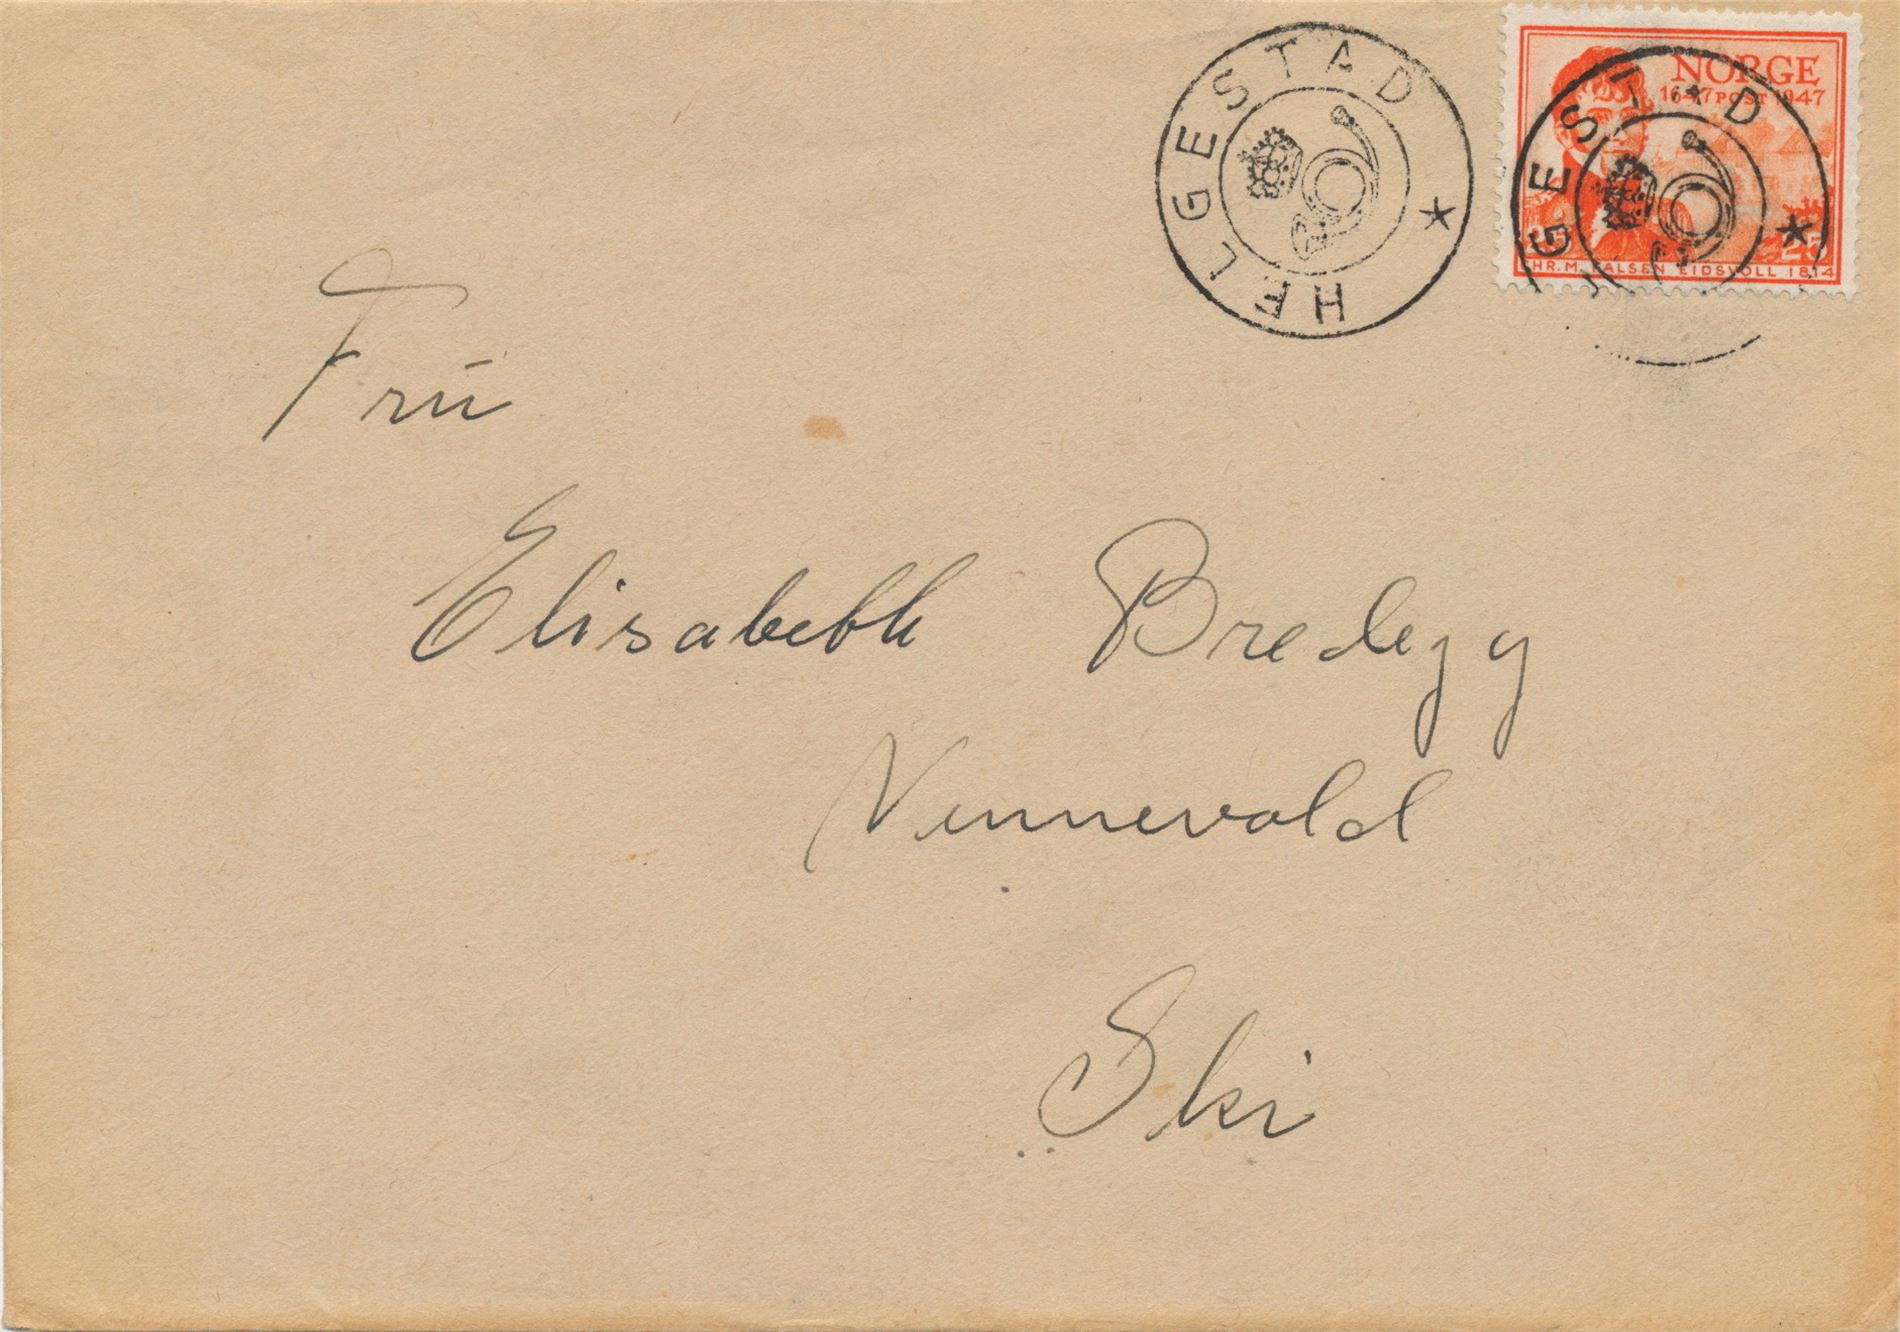 HELGESTAD
NORGE
1647 POST 1947
GESTAD
25
CHR. M. FALSEN EIDSVOLL 1814
Frü
Elisabeth Bredegg
Vennevold
Ski